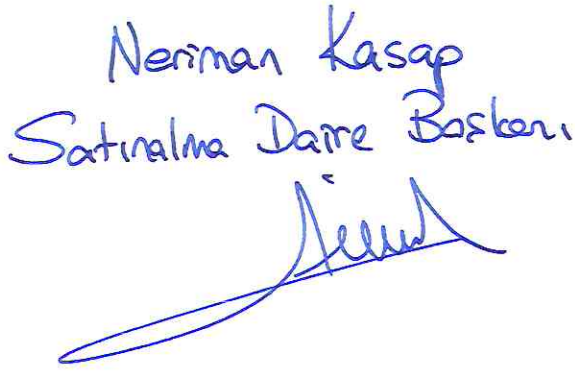 Neriman Kasap
Satınalma Daire Başkanı